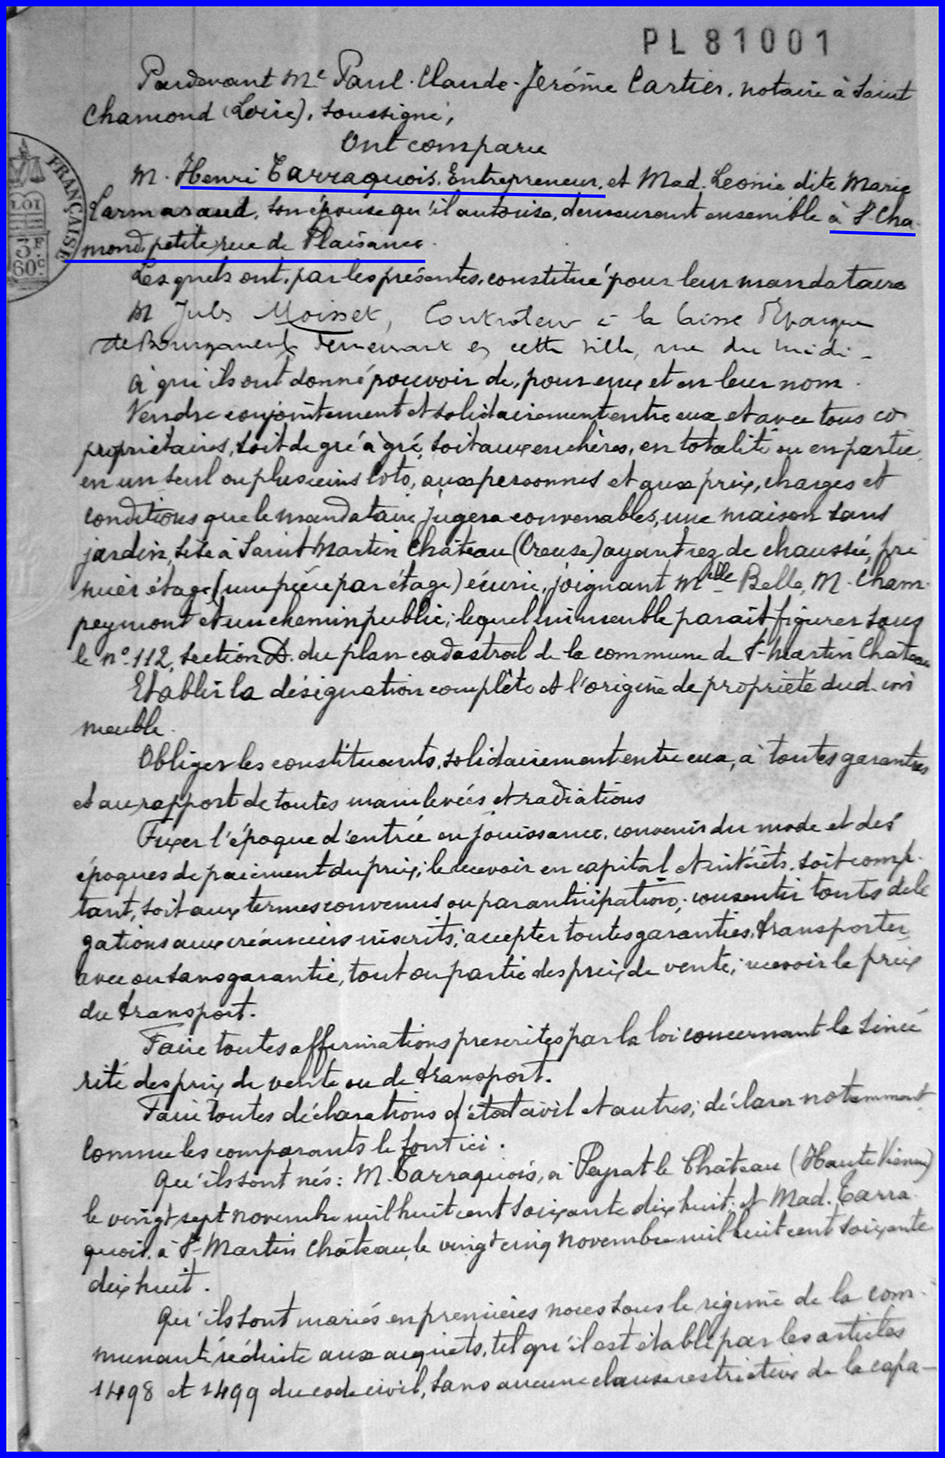 PL81001
Pardevant Me Paul-Claude-Jérôme Cartier, notaire à Saint
Chamond (Loire), soussigné,
Ont comparu
M. Henri Tarraquois, Entrepreneur, et Mad. Léonie dite Marie
son épouse qu'il autorise, demeurant ensemble à St Cha
mond, petite rue de Plaisance.
Lesquels ont, par les présentes, constitué pour leur mandataire
M Jules Moisset, Contrôleur à la Caisse d'Epargne
de Bourganeuf, demeurant en cette ville, rue du Midi -
A qui ils ont donné pouvoir de, pour eux et en leur nom.
Vendre conjointement et solidairement entre eux et avec tous co
propriétaires, soit de gré à gré, soit aux enchères, en totalité ou en partie,
en un seul ou plusieurs lots, aux personnes et aux prix, charges et
conditions que le mandataire jugera convenables, une maison sans
jardin, sise à Saint Martin Château (Creuse) ayant rez de chaussée, pre
mier étage (une pièce par étage) écurie, joignant Melle Belle, M. Cham
peymont et un chemin public; lequel immeuble parait figurer sous
le no. 112, section D. du plan cadastral de la commune de St-Martin Château
Etablir la désignation complète et l'origine de propriété dud. im
meuble.
Obliger les constituants, solidairement entre eux, à toutes garanties
et au rapport de toutes mainlevées et radiations
Fixer l'époque d'entrée en jouissance, convenir du mode et des
époques de paiement du prix; le recevoir en capital et intérêts, soit comp-
tant, soit aux termes convenus ou par anticipation; consentir toutes délé
gations aux créanciers inscrits; accepter toutes garanties, transporter
avec ou sans garantie, tout ou partie des prix de vente; recevoir le prix
du transport.
Faire toutes affirmations prescrites par la loi concernant la sincé
rité des prix de vente ou de transport.
Faire toutes déclarations d'état civil et autres; déclarer notamment
comme les comparants le font ici.
Qu'ils sont nés: M. Tarraquois, à Peyrat le Château (Haute Vienne)
le vingt sept novembre mil huit cent soixante dix huit; et Mad. Tarra
quois, à St-Martin Château, le vingt cinq novembre mil huit cent soixante
dix huit.
Qu'ils sont mariés en premières noces sous le régime de la com-
munauté réduite aux acquêts, tel qu'il est établi par les articles
1498 et 1499 du code civil, sans aucune clause restrictive de la capa-
FRANÇAISE
LOI
3F
60c